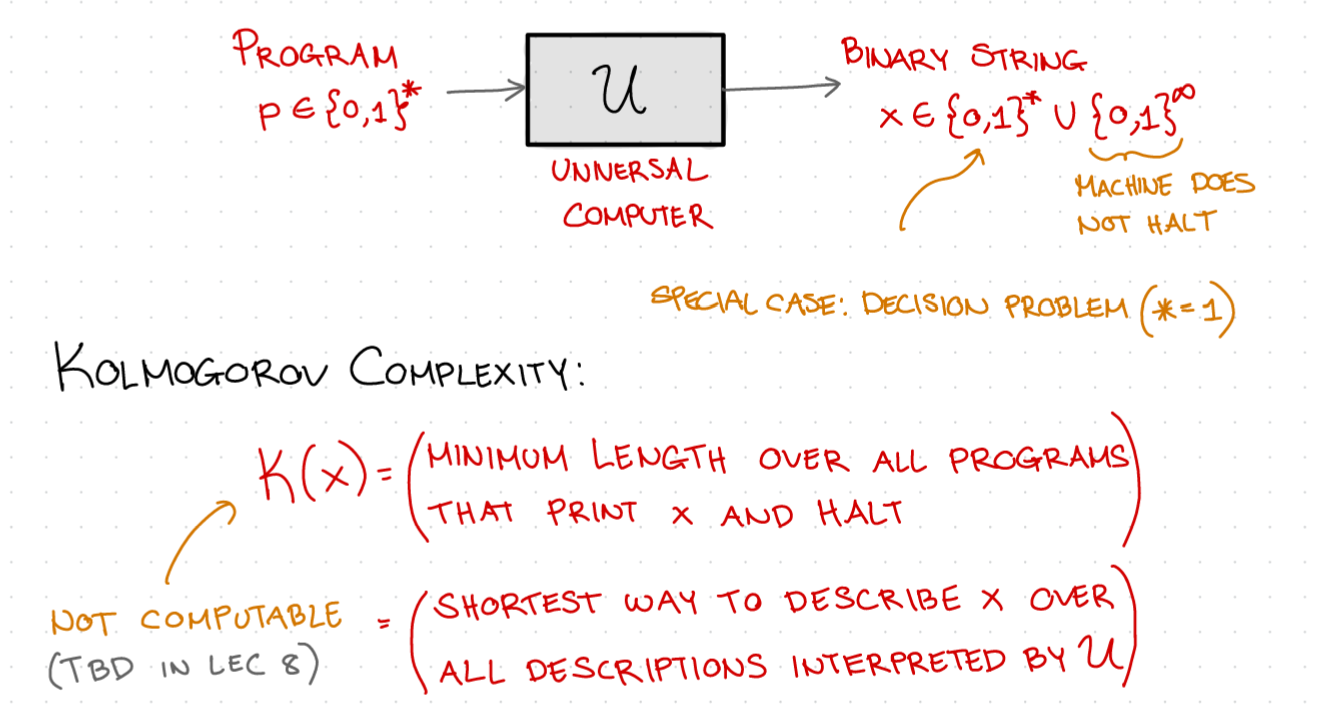 PROGRAM
p ∈ {0,1}*
U
UNIVERSAL
COMPUTER
BINARY STRING
x ∈ {0,1}* ∪ {0,1}^∞
MACHINE DOES
NOT HALT
SPECIAL CASE: DECISION PROBLEM (* = 1)
KOLMOGOROV COMPLEXITY:
K(x) = (MINIMUM LENGTH OVER ALL PROGRAMS
THAT PRINT X AND HALT)
NOT COMPUTABLE
(TBD IN LEC 8)
= (SHORTEST WAY TO DESCRIBE X OVER
ALL DESCRIPTIONS INTERPRETED BY U)